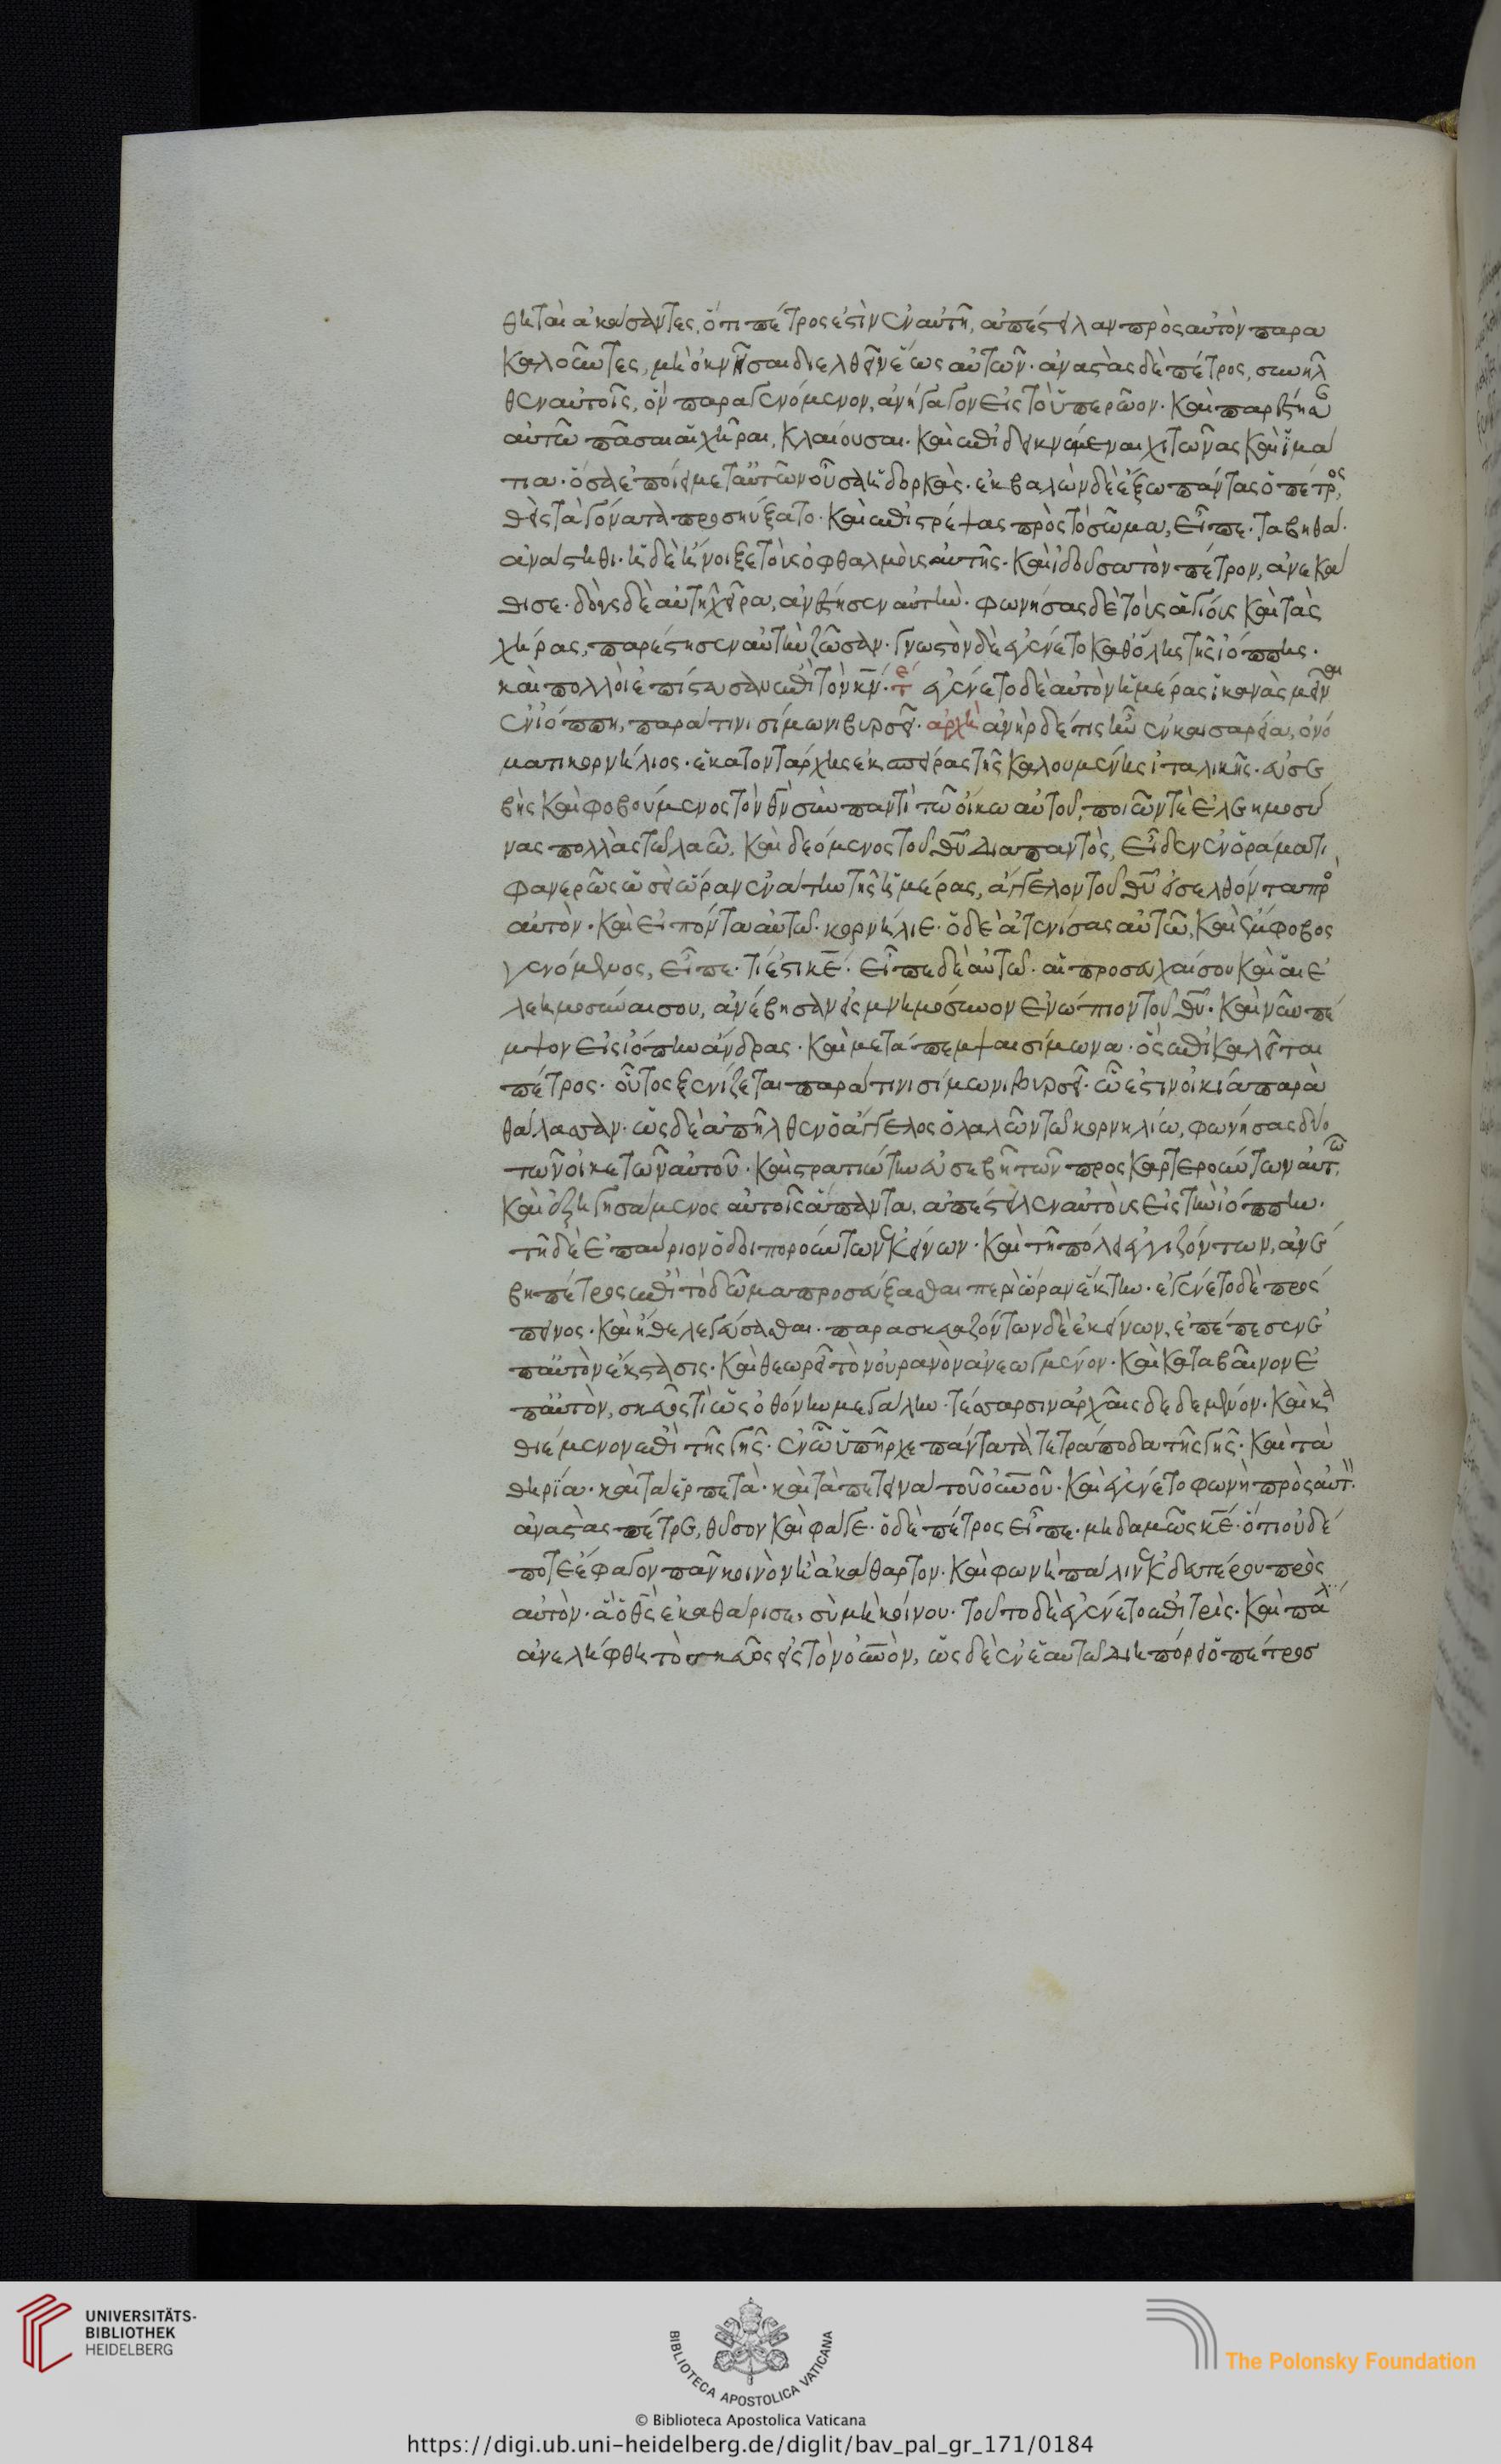 θηταὶ ἀκούσαντες, ὅτι πέτρος ἐστὶν ἐν αὐτῆ, ἀπέστειλαν πρὸς αὐτὸν παρα
καλοῦντες, μὴ ὀκνῆσαι διελθεῖν ἕως αὐτῶν· ἀναστὰς δὲ πέτρος, συνῆλ
θεν αὐτοῖς, ὃν παραγενόμενον, ἀνήγαγον εἰς τὸ ὑπερῶον· καὶ παρέστησαν
αὐτῶ πᾶσαι αἱ χῆραι, κλαίουσαι· καὶ ἐπιδεικνύμεναι χιτῶνας καὶ ἱμά
τια· ὅσα ἐποίει μετ αὐτῶν οὖσα ἡ δορκάς· ἐκβαλὼν δὲ ἔξω πάντας ὁ πέτρος,
θεὶς τὰ γόνατα προσηύξατο· καὶ ἐπιστρέψας πρὸς τὸ σῶμα, εἶπε· ταβηθά·
ἀνάστηθι· ἡ δὲ ἤνοιξε τοὺς ὀφθαλμοὺς αὐτῆς· καὶ ἰδοῦσα τὸν πέτρον, ἀνεκά
θισε· δοὺς δὲ αὐτῆ χεῖρα, ἀνέστησεν αὐτήν· φωνήσας δὲ τοὺς ἁγίους καὶ τὰς
χήρας, παρέστησεν αὐτὴν ζῶσαν· γνωστὸν δὲ ἐγένετο καθόλης τῆς ἰόππης·
καὶ πολλοὶ ἐπίστευσαν ἐπὶ τὸν κν̅· τε ἐγένετο δὲ αὐτὸν ἡμέρας ἱκανὰς μεῖναι
ἐν ἰόππη, παρά τινι σίμωνι βυρσεῖ· ἀρχὴ ἀνὴρ δέ τις ἦν ἐν καισαρεία, ὀνό
ματι κορνήλιος· ἑκατοντάρχης ἐκ σπείρας τῆς καλουμένης ἰταλικῆς· εὐσε
βὴς καὶ φοβούμενος τὸν θν̅ σὺν παντὶ τῶ οἴκω αὐτοῦ, ποιῶν τὲ ἐλεημοσύ
νας πολλὰς τῶ λαῶ, καὶ δεόμενος τοῦ θυ̅ διαπαντὸς, εἶδεν ἐν ὁράματι
φανερῶς ὡσεὶ ὥραν ἐνάτην τῆς ἡμέρας, ἄγγελον τοῦ θυ̅ εἰσελθόντα πρὸ
αὐτόν· καὶ εἰπόντα αὐτῶ· κορνήλιε· ὁ δὲ ἀτενίσας αὐτῶ, καὶ ἔμφοβος
γενόμενος, εἶπε· τί ἐστι κε̅· εἶπε δὲ αὐτῶ· αἱ προσευχαί σου καὶ αἱ ἐ
λεημοσύναι σου, ἀνέβησαν εἰς μνημόσυνον ἐνώπιον τοῦ θυ̅· καὶ νῦν πέ
μψον εἰς ἰόπην ἄνδρας· καὶ μετάπεμψαι σίμωνα· ὃς ἐπικαλεῖται
πέτρος· οὗτος ξενίζεται παρά τινι σίμωνι βυρσεῖ· ὧ ἐστιν οἰκία παρὰ
θάλασσαν· ὡς δὲ ἀπῆλθεν ὁ ἄγγελος ὁ λαλῶν τῶ κορνηλίω, φωνήσας δύο
τῶν οἰκετῶν αὐτοῦ· καὶ στρατιώτην εὐσεβῆ τῶν προσκαρτερούντων αὐτῶ,
καὶ ἐξηγησάμενος αὐτοῖς ἅπαντα, ἀπέστειλεν αὐτοὺς εἰς τὴν ἰόππην·
τῆ δὲ ἐπαύριον ὁδοιπορούντων ἐκείνων· καὶ τῆ πόλει ἐγγιζόντων, ἀνέ
βη πέτρος ἐπὶ τὸ δῶμα προσεύξασθαι περὶ ὥραν ἕκτην· ἐγένετο δὲ πρόσ
πεινος· καὶ ἤθελε γεύσασθαι· παρασκευαζόντων δὲ ἐκείνων, ἐπέπεσεν ἐ
παὐτὸν ἔκστασις· καὶ θεωρεῖ τὸν οὐρανὸν ἀνεωγμένον· καὶ καταβαῖνον ἐ
παὐτὸν, σκεῦός τι ὡς ὀθόνην μεγάλην· τέσσαρσιν ἀρχαῖς δεδεμένον· καὶ κα
θιέμενον ἐπὶ τῆς γῆς· ἐν ὧ ὑπῆρχε πάντα τὰ τετράποδα τῆς γῆς· καὶ τὰ
θηρία· καὶ τὰ ἑρπετὰ· καὶ τὰ πετεινὰ τοῦ οὐ̅νοῦ· καὶ ἐγένετο φωνὴ πρὸς αὐτ·
ἀναστὰς πέτρε, θῦσον καὶ φάγε· ὁ δὲ πέτρος εἶπε· μηδαμῶς κε̅· ὅτι οὐδέ
ποτε ἔφαγον πᾶν κοινὸν ἢ ἀκάθαρτον· καὶ φωνὴ πάλιν ἐκ δευτέρου πρὸς
αὐτόν· ἃ ὁ θς̅ ἐκαθάρισε, σὺ μὴ κοίνου· τοῦτο δὲ ἐγένετο ἐπὶ τρίς· καὶ πάλ
ἀνελήφθη τὸ σκεῦος εἰς τὸν οὐ̅νὸν, ὡς δὲ ἐν ἑαυτῶ διηπόρει ὁ πέτροσ
UNIVERSITÄTS-
BIBLIOTHEK
HEIDELBERG
BIBLIOTECA APOSTOLICA VATICANA
The Polonsky Foundation
© Biblioteca Apostolica Vaticana
https://digi.ub.uni-heidelberg.de/diglit/bav_pal_gr_171/0184